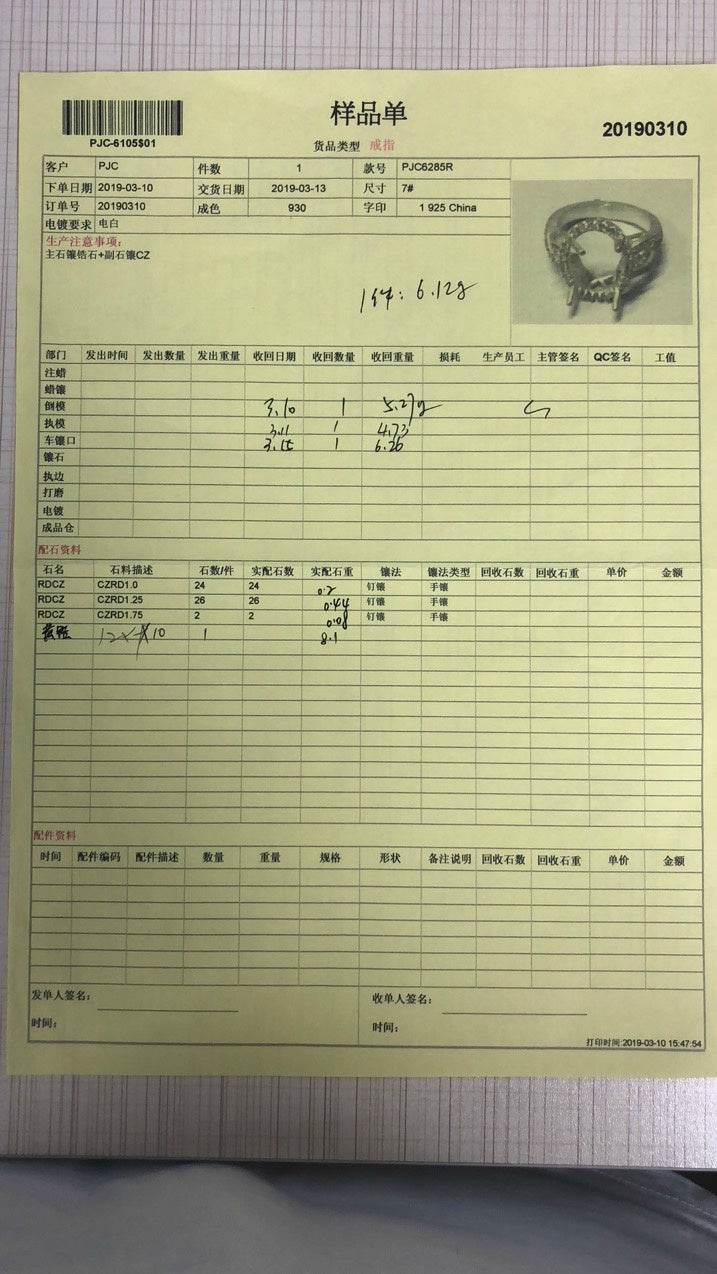 样品单
20190310
PJC-6105$01
货品类型 戒指
客户 PJC 件数 1 款号 PJC6285R
下单日期 2019-03-10 交货日期 2019-03-13 尺寸 7#
订单号 20190310 成色 930 字印 1 925 China
电镀要求 电白
生产注意事项:
主石镶锆石+副石镶CZ
1件: 6.12g
部门 发出时间 发出数量 发出重量 收回日期 收回数量 收回重量 损耗 生产员工 主管签名 QC签名 工值
注蜡
蜡镶
倒模 3.10 1 5.27g
执模 3.11 1 4.73
车镶口 1 6.26
镶石
执边
打磨
电镀
成品仓
配石资料
石名 石料描述 石数/件 实配石数 实配石重 镶法 镶法类型 回收石数 回收石重 单价 金额
RDCZ CZRD1.0 24 24 0.2 钉镶 手镶
RDCZ CZRD1.25 26 26 0.44 钉镶 手镶
RDCZ CZRD1.75 2 2 0.08 钉镶 手镶
12× 10 1 8.1
配件资料
时间 配件编码 配件描述 数量 重量 规格 形状 备注说明 回收石数 回收石重 单价 金额
发单人签名: 收单人签名:
时间: 时间:
打印时间:2019-03-10 15:47:54